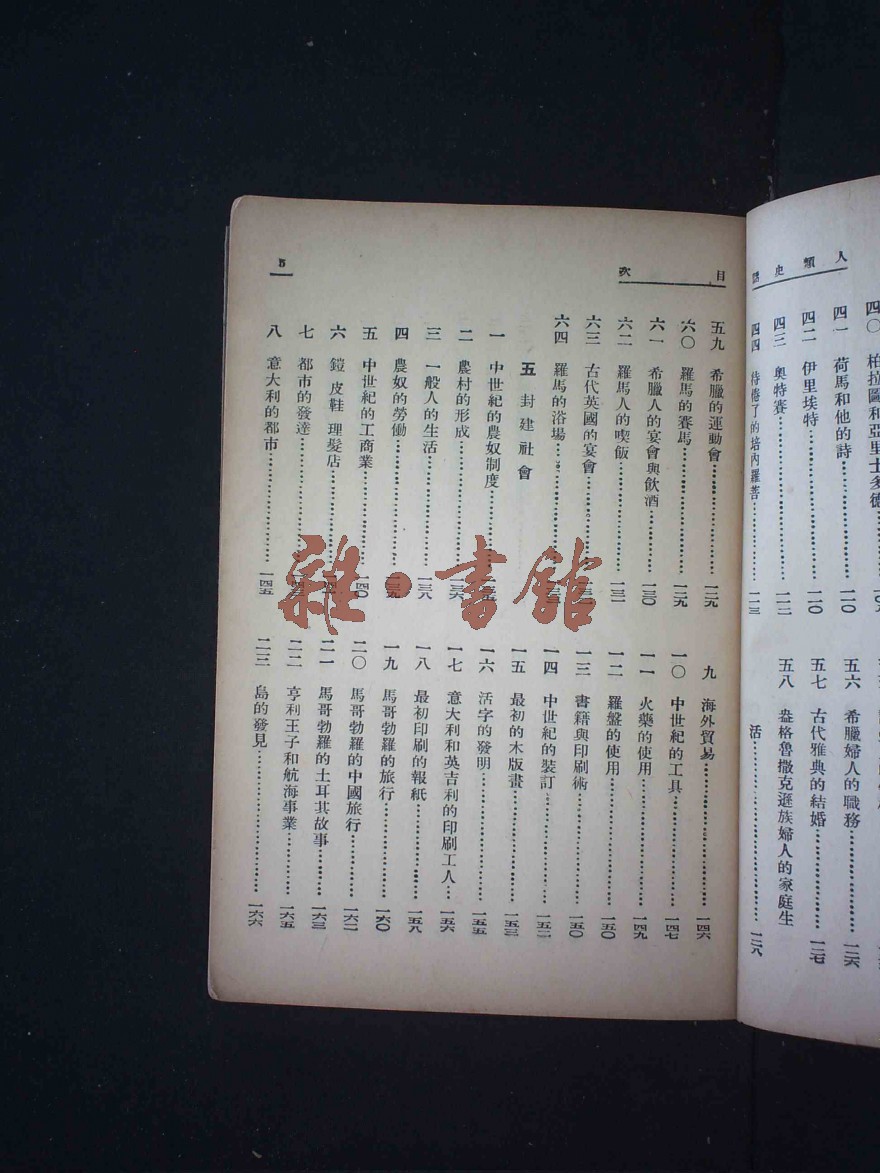 人類史話
四〇 柏拉圖和亞里士多德
四一 荷馬和他的詩……一一〇
四二 伊里埃特……一一〇
四三 奧特賽……一一二
四四 待倦了的培內羅菩……一一三
五六 希臘婦人的職務……一二六
五七 古代雅典的結婚……一二七
五八 盎格魯撒克遜族婦人的家庭生
活……一二八
目次
五九 希臘的運動會……一二九
六〇 羅馬的賽馬……一二九
六一 希臘人的宴會與飲酒……一三〇
六二 羅馬人的喫飯……一三一
六三 古代英國的宴會
六四 羅馬的浴場
五 封建社會
一 中世紀的農奴制度
二 農村的形成……一三六
三 一般人的生活……一三八
四 農奴的勞働……一三九
五 中世紀的工商業……一四〇
六 鎧 皮鞋 理髮店
七 都市的發達
八 意大利的都市……一四五
九 海外貿易……一四六
一〇 中世紀的工具……一四七
一一 火藥的使用……一四九
一二 羅盤的使用……一五〇
一三 書籍與印刷術……一五〇
一四 中世紀的裝訂……一五二
一五 最初的木版畫……一五三
一六 活字的發明……一五五
一七 意大利和英吉利的印刷工人……一五六
一八 最初印刷的報紙……一五八
一九 馬哥勃羅的旅行……一六〇
二〇 馬哥勃羅的中國旅行……一六二
二一 馬哥勃羅的土耳其故事……一六三
二二 亨利王子和航海事業……一六五
二三 島的發見……一六六
5
雜·書館